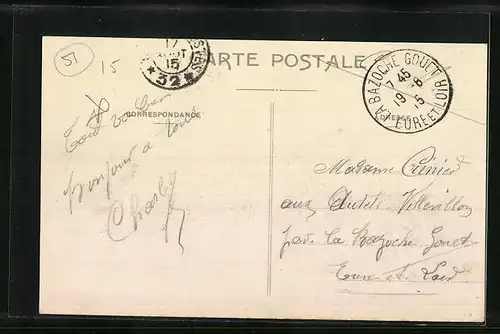 51
15
17
15
*32*
CARTE POSTALE
LA BAZOCHE GOUET
7 45
19 -8
15
EURE ET LOIR
CORRESPONDANCE
ADRESSE
Tout va bien
Bonjour à tous
Charles
Madame
aux Autels Villevillon
par la Bazoche Gouet
Eure et Loir